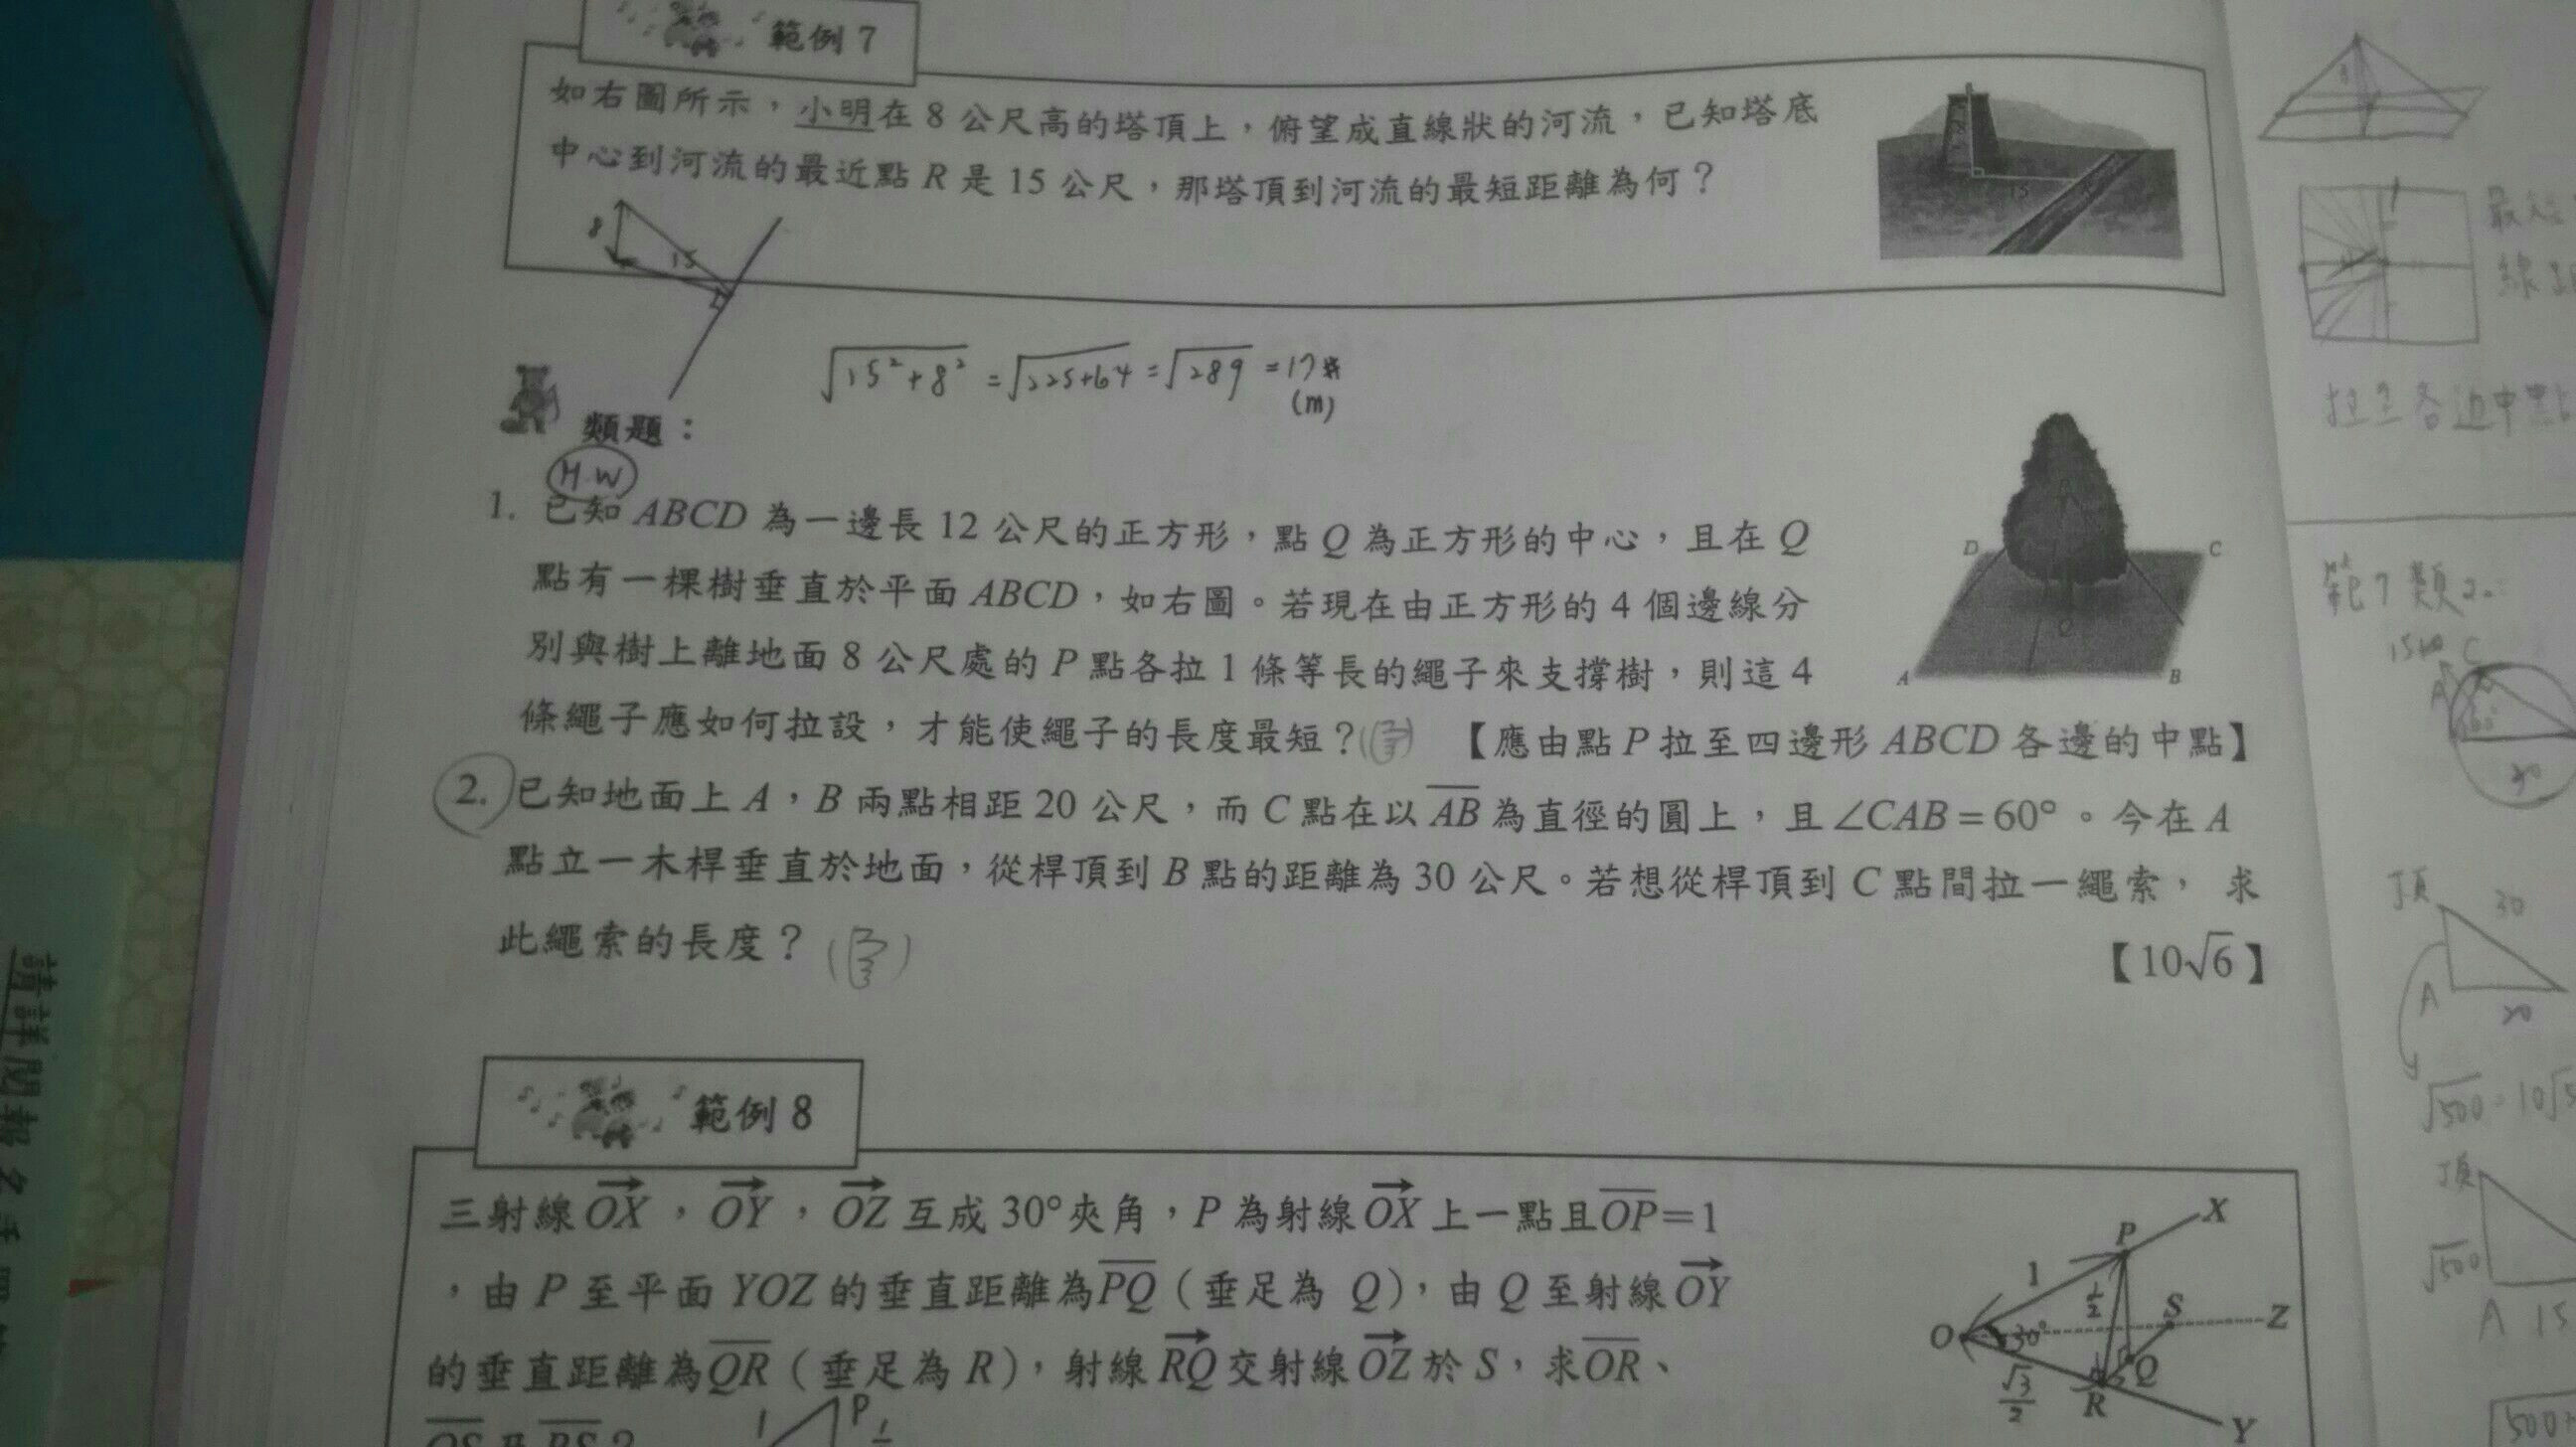 範例 7
如右圖所示，小明在 8 公尺高的塔頂上，俯望成直線狀的河流，已知塔底
中心到河流的最近點 R 是 15 公尺，那塔頂到河流的最短距離為何？
8
15
15
√15²+8² = √225+64 = √289 = 17
(m)
類題：
H.W
1. 已知 ABCD 為一邊長 12 公尺的正方形，點 Q 為正方形的中心，且在 Q
點有一棵樹垂直於平面 ABCD，如右圖。若現在由正方形的 4 個邊線分
別與樹上離地面 8 公尺處的 P 點各拉 1 條等長的繩子來支撐樹，則這 4
條繩子應如何拉設，才能使繩子的長度最短？ 【應由點 P 拉至四邊形 ABCD 各邊的中點】
D C
Q
A B
2. 已知地面上 A，B 兩點相距 20 公尺，而 C 點在以 A̅B̅ 為直徑的圓上，且 ∠CAB = 60°。今在 A
點立一木桿垂直於地面，從桿頂到 B 點的距離為 30 公尺。若想從桿頂到 C 點間拉一繩索， 求
此繩索的長度？ 【10√6】
範例 8
三射線 OX→，OY→，OZ→ 互成 30° 夾角，P 為射線 OX→ 上一點且 O̅P̅=1
，由 P 至平面 YOZ 的垂直距離為 P̅Q̅（垂足為 Q），由 Q 至射線 OY→
的垂直距離為 Q̅R̅（垂足為 R），射線 RQ→ 交射線 OZ→ 於 S，求 O̅R̅、
X
P
1
1/2
S
Z
O
30°
√3/2
Q
R
Y
P
1
拉至各邊中點
範 7 類 2.
C
頂
30
A
20
頂
√500
A 15
請詳閱報名